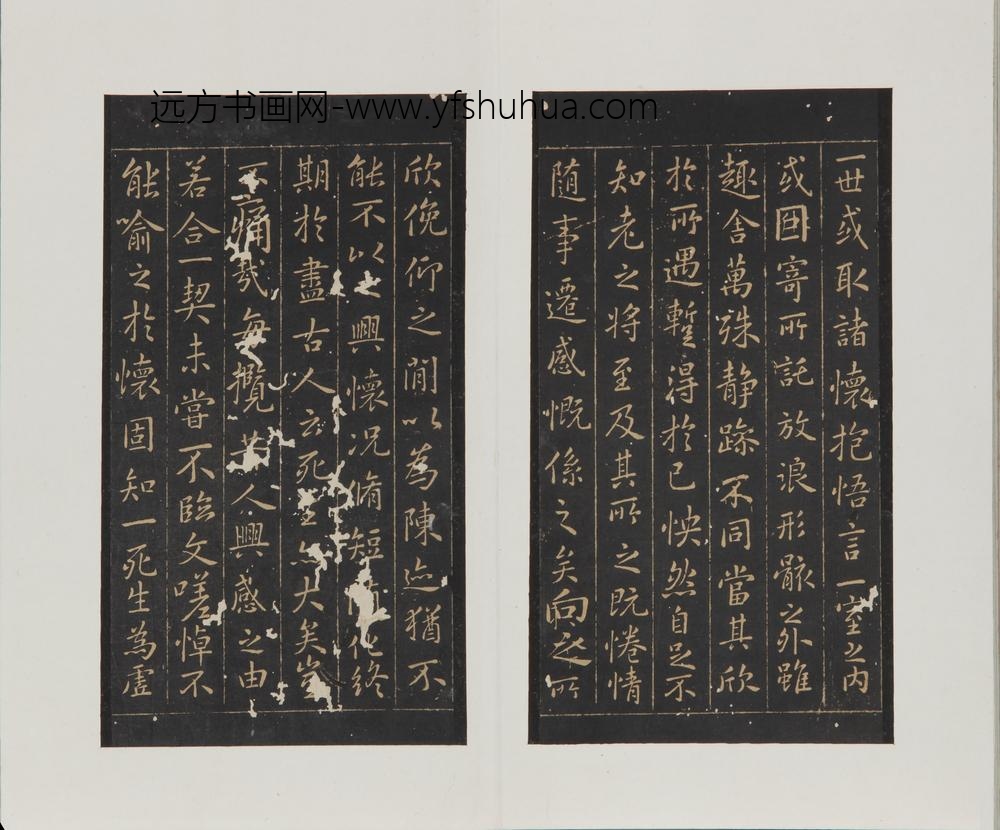 远方书画网-www.yfshuhua.com
一世或取諸懷抱悟言一室之内
或因寄所託放浪形骸之外雖
趣舍萬殊静躁不同當其欣
於所遇蹔得於己怏然自足不
知老之將至及其所之既惓情
随事遷感慨係之矣向之所
欣俛仰之閒以為陳迹猶不
能不以之興懷况脩短隨化終
期於盡古人云死生亦大矣豈
不痛哉每攬昔人興感之由
若合一契未嘗不臨文嗟悼不
能喻之於懷固知一死生為虚